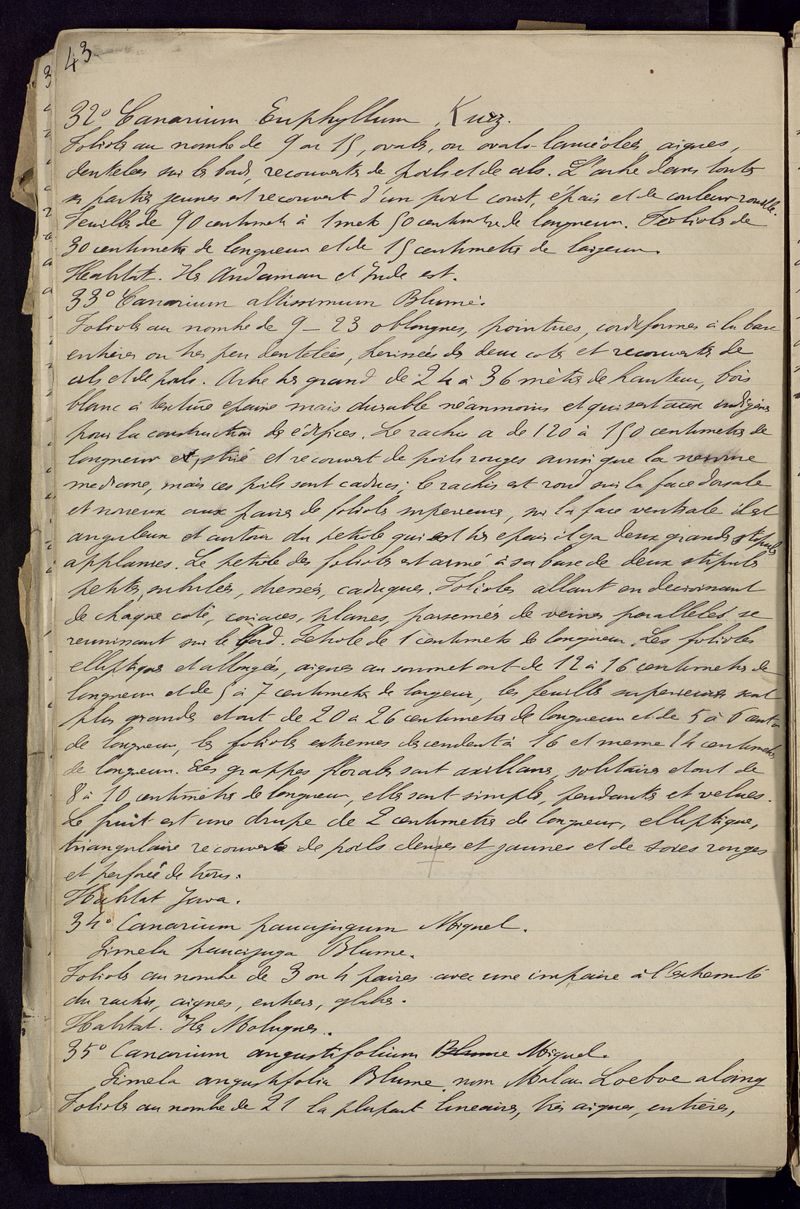 43
32° Canarium Euphyllum Kurz.
Folioles au nombre de 9 ou 15, ovales, ou ovales-lancéolées, aigues,
dentelées sur les bords, recouvertes de poils et de cils. L'arbre dans toutes
ses parties jeunes est recouvert d'un poil court, épais et de couleur rouille.
Feuilles de 90 centimetres à 1 metre 50 centimetres de longueur. Folioles de
30 centimetres de longueur et de 15 centimetres de largeur.
Habitat. Iles Andaman et Inde est.
33° Canarium altissimum Blume.
Folioles au nombre de 9 – 23 oblongues, pointues, cordiformes à la base
entières ou tres peu dentelées, herissées des deux cotés et recouvertes de
cils et de poils. Arbre tres grand de 24 à 36 mètres de hauteur, bois
blanc à texture epaisse mais durable néanmoins et qui sert aux indigènes
pour la construction des édifices. Le rachis a de 120 à 150 centimetres de
longueur et, strié et recouvert de poils rouges ainsi que la nervure
mediane, mais ces poils sont caducs; le rachis est rond sur la face dorsale
et noueux aux paires de folioles superieures, sur la face ventrale il est
anguleux et autour du petiole qui est tres epais il y a deux grandes stipules
applanies. Le petiole des folioles est armé à sa base de deux stipules
petites, subulées, dressées, caduques. Folioles allant en decroissant
de chaque coté, coriaces, planes, parsemées de veines paralleles se
reunissant sur le bord. Petiole de 1 centimetre de longueur. Les folioles
elliptiques et allongées, aigues au sommet ont de 12 à 16 centimetres de
longueur et de 5 à 7 centimetres de largeur, les feuilles superieures sont
plus grandes et ont de 20 a 26 centimetres de longueur et de 5 à 6 cent
de longueur, les folioles extremes descendent à 16 et meme 14 centimetres
de longueur. Les grappes florales sont axillaires, solitaires et ont de
8 à 10 centimètres de longueur, elles sont simples, pendantes et velues.
Le fruit est une drupe de 2 centimetres de longueur, elliptique,
triangulaire recouverte de poils denses et jaunes et de soies rouges
et perforée de trous.
Habitat Java.
34° Canarium paucijugum Miquel.
Pimela paucijuga Blume.
Folioles au nombre de 3 ou 4 paires avec une impaire à l'extremité
du rachis, aigues, entieres, glabres.
Habitat. Iles Moluques.
35° Canarium angustifolium Blume Miquel.
Pimela angustifolia Blume nom Malau Loeboe aloing
Folioles au nombre de 21 la plupart lineaires, très aigues, entières,